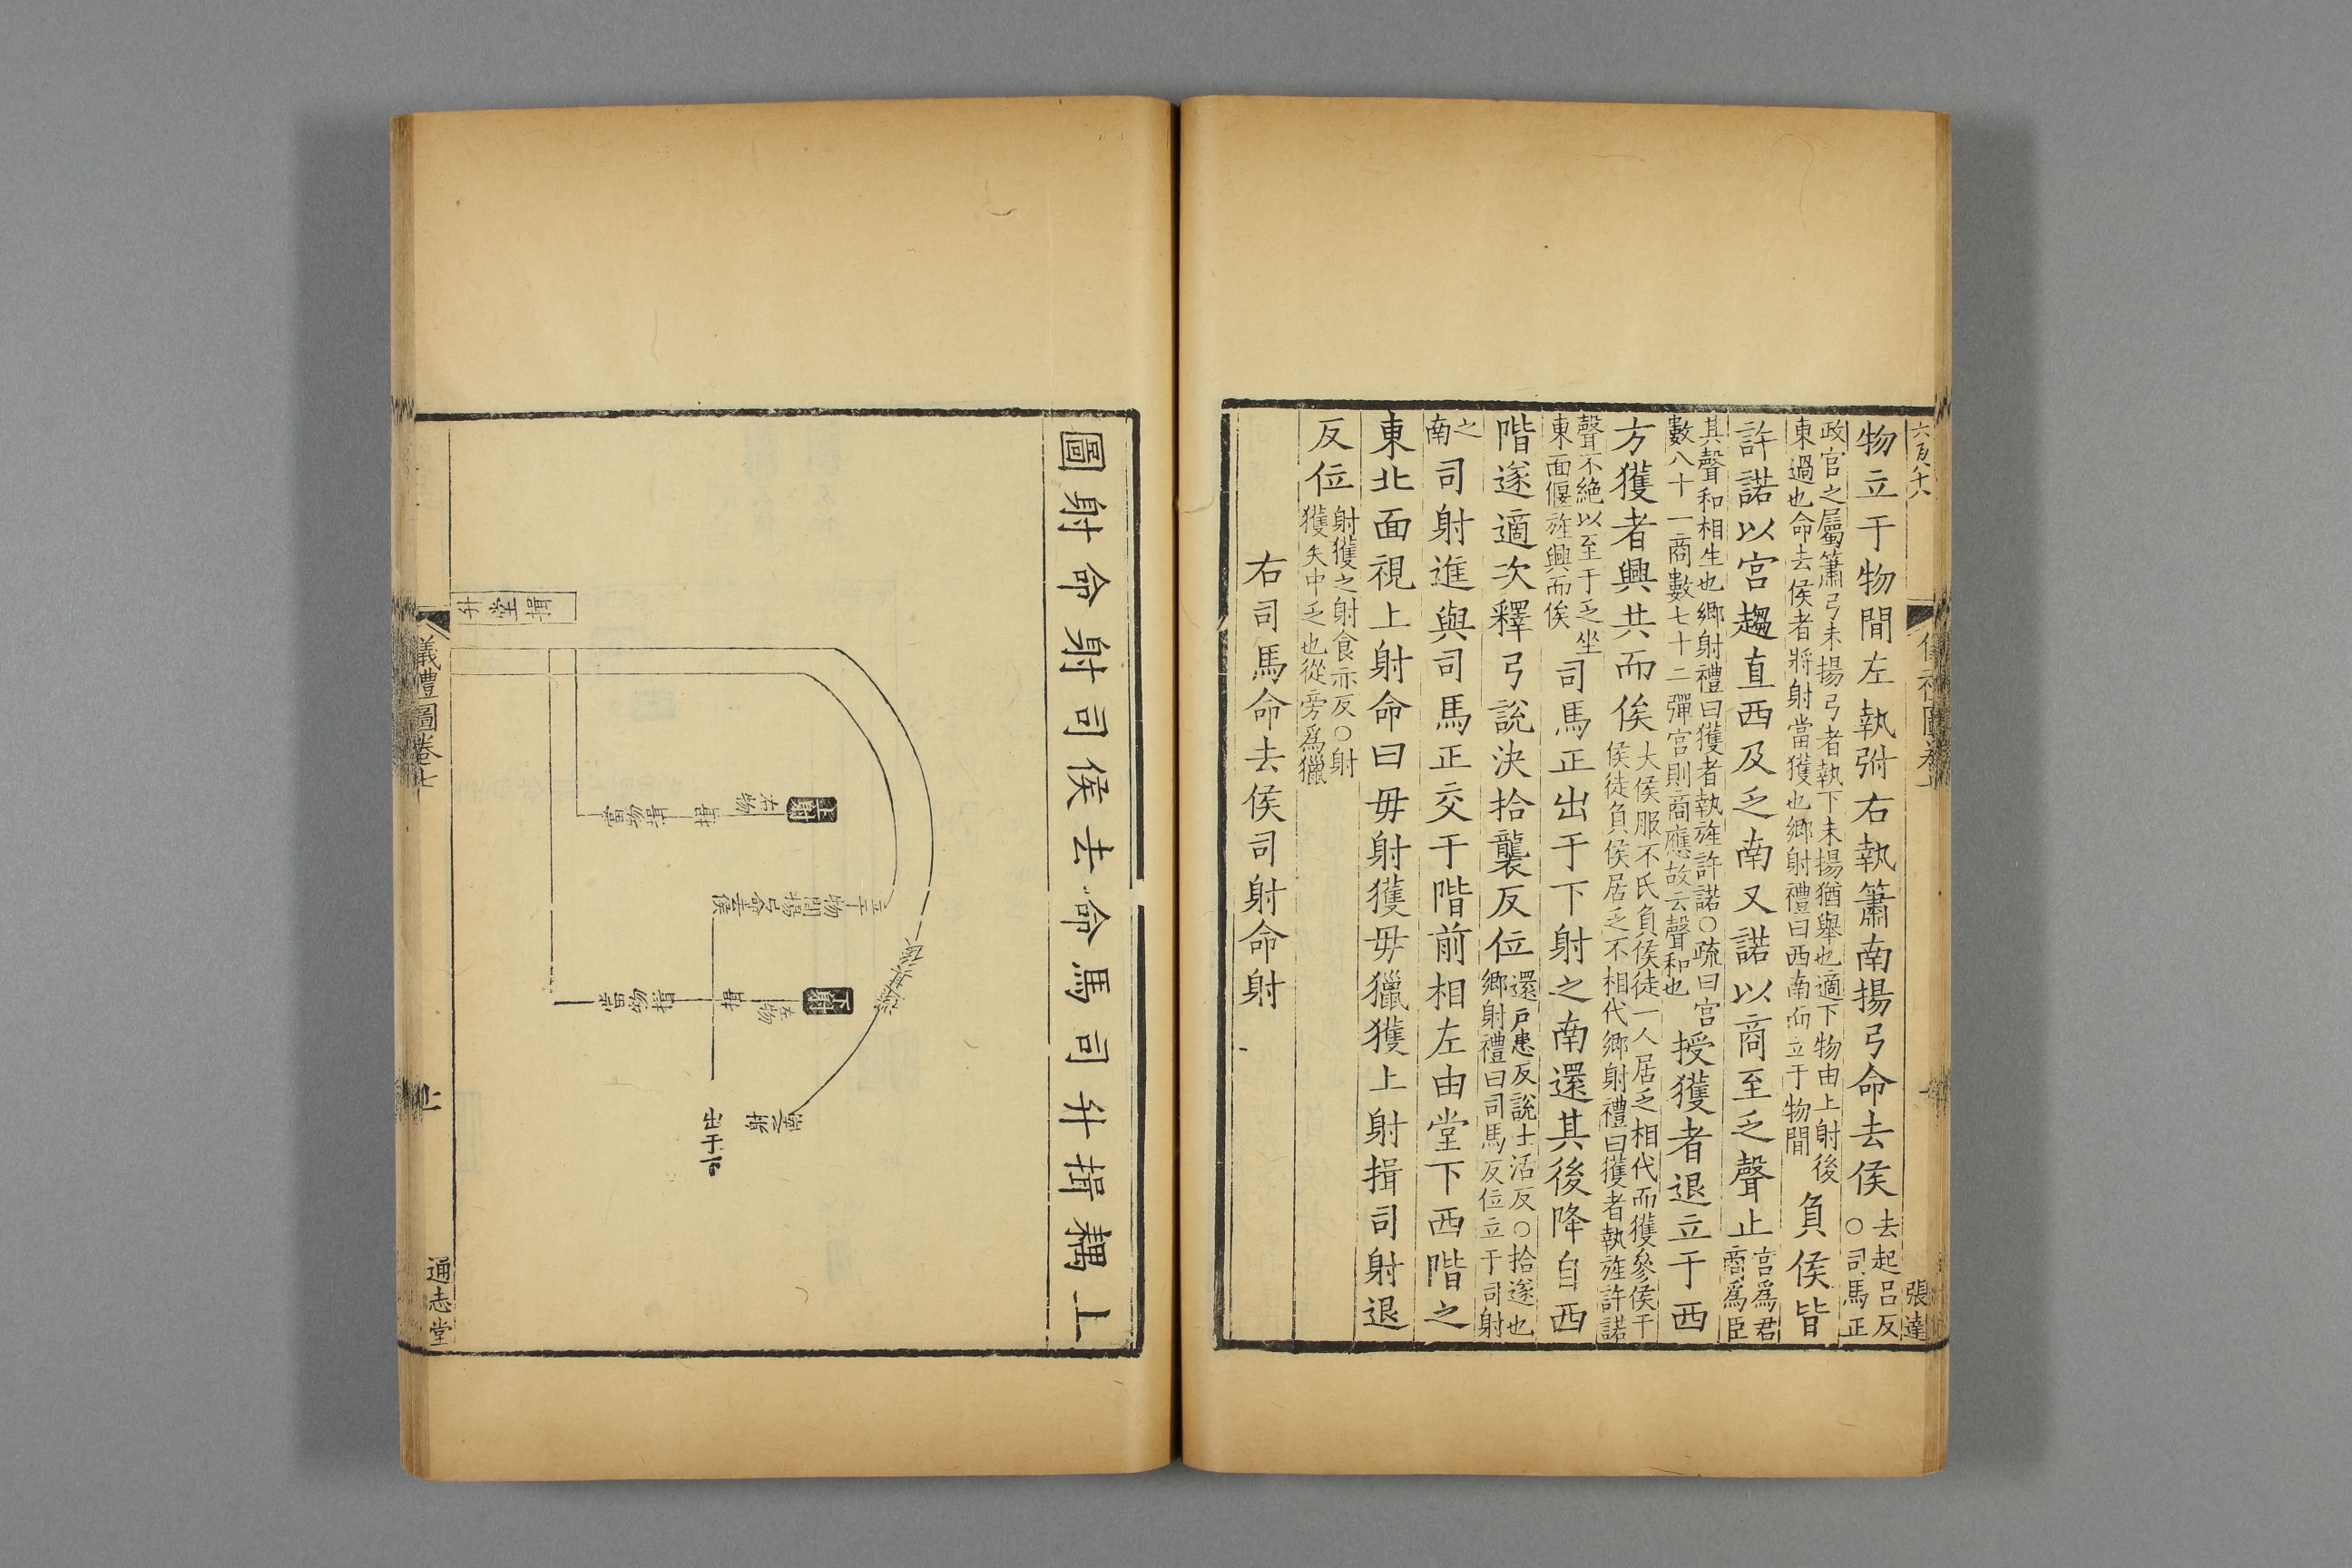 六百八十八
張達
物立于物間左執弣右執簫南揚弓命去侯去起呂反○司馬正
政官之屬簫弓末揚弓者執下末揚猶舉也適下物由上射後東過也命去侯者將射當獲也鄉射禮曰西南面立于物間負侯皆
許諾以宮趨直西及乏南又諾以商至乏聲止宮為君商為臣
其聲和相生也鄉射禮曰獲者執旌許諾○疏曰宮數八十一商數七十二彈宮則商應故云聲和也授獲者退立于西
方獲者興共而俟大侯服不氏負侯徒一人居乏相代而獲參侯干侯徒負侯居乏不相代鄉射禮曰獲者執旌許諾
聲不絶以至于乏坐東面偃旌興而俟司馬正出于下射之南還其後降自西
階遂適次釋弓說決拾襲反位還戸患反說士活反○拾遂也鄉射禮曰司馬反位立于司射
之南司射進與司馬正交于階前相左由堂下西階之
東北面視上射命曰毋射獲毋獵獲上射揖司射退
反位射獲之射食亦反○射獲矢中乏也從旁為獵
右司馬命去侯司射命射
上耦揖升司馬命去侯司射命射圖
揖堂升
上射
右物
揖
當物揖
立于物間揚弓命去侯
還其後
下射
左物
揖
當物揖
射之南
出于下
儀禮圖卷七
通志堂